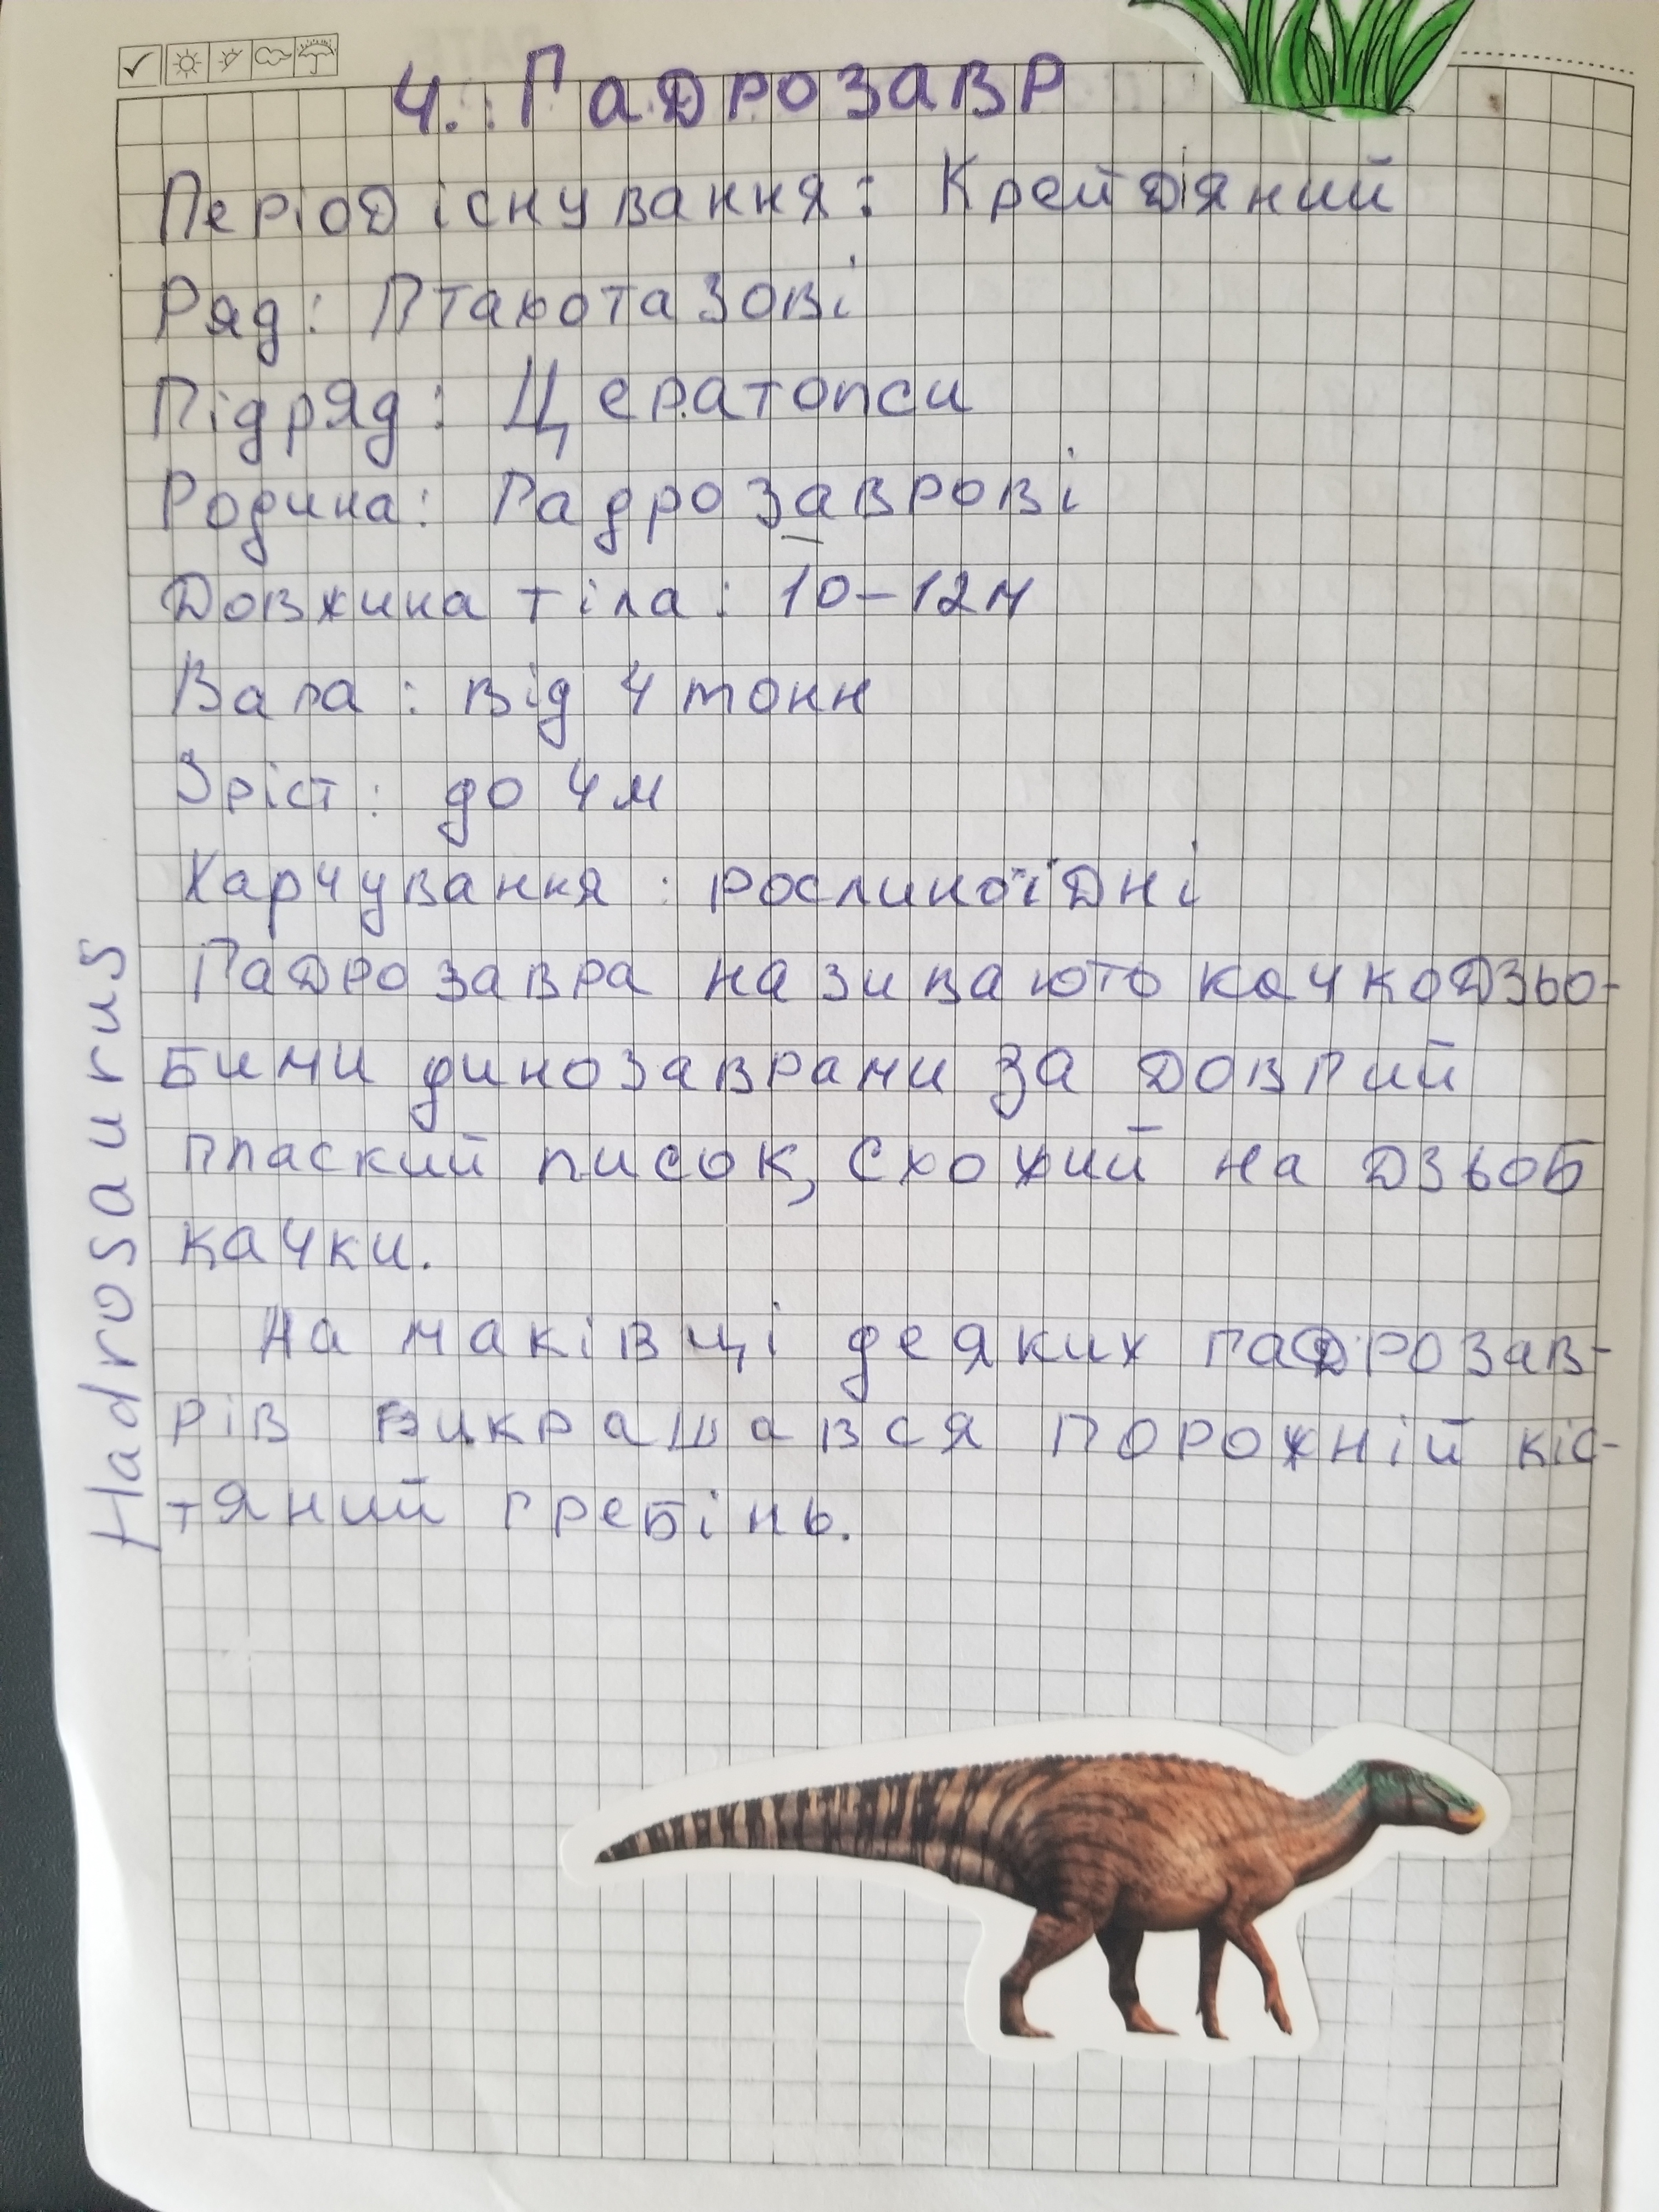 4. Гадрозавр
Період існування: Крейдіяний
Ряд: Птахотазові
Підряд: Цератопси
Родина: Гадрозаврові
Довжина тіла: 10-12м
Вага: від 4 тонн
Зріст: до 4м
Харчування: рослиноїдні
Гадрозавра називають качкодзьо-
бими динозаврами за довгий
плаский писок, схожий на дзьоб
качки.
На маківці деяких гадрозав-
рів викрашався порожній кіс-
тяний гребінь.
Hadrosaurus